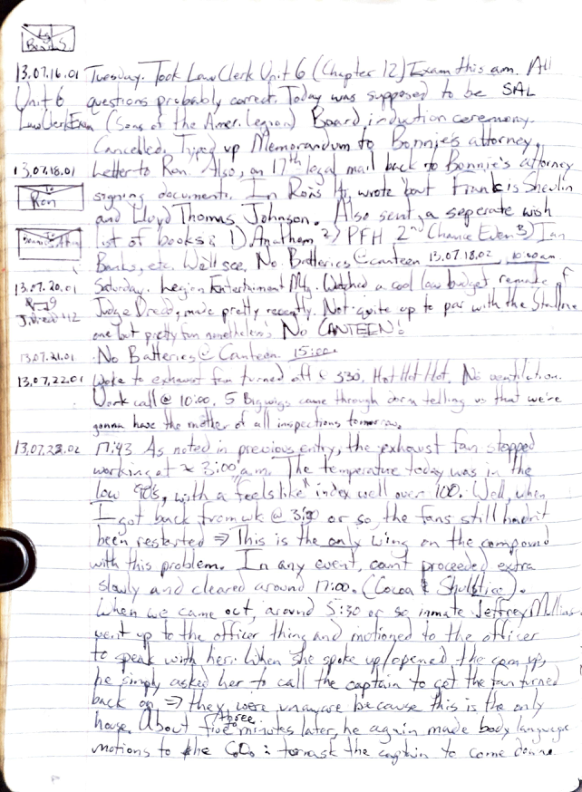 To
Bonnie's
13.07.16.01 Tuesday. Took Law Clerk Unit 6 (Chapter 12) Exam this am. All
Unit 6 questions probably correct. Today was supposed to be SAL
Law Clerk Exam (Sons of the Amer. Legion) Board induction ceremony.
Cancelled. Typed up Memorandum to Bonnie's attorney,
13.07.18.01 Letter to Ron. Also, an 17th legal mail back to Bonnie's attorney
To Ron
signing documents. In Ron's ltr, wrote bout Frank is Shevlin
and Lloyd Thomas Johnson. Also sent a seperate wish
list of books: 1) Anathem 2) PFH 2nd Chance Even 3) Ian
Banks, etc. We'll see. No Batteries @ canteen 13.07.18.02, 10:00am.
13.07.20.01 Saturday. Legion Entertainment Mtg. Watched a cool low budget remake of
Judge Dredd, made pretty recently. Not quite up to par with the Stallone
one but pretty fun nonetheless. No CANTEEN!
13.07.21.01 No Batteries @ Canteen 15:00.
13.07.22.01 Woke to exhaust fan turned off @ 330. Hot Hot Hot. No ventilation.
Work call @ 10:00. 5 Big wigs came through telling us that we're
gonna have the mother of all inspections tomorrow.
13.07.22.02 17:43 As noted in previous entry, the exhaust fan stopped
working at ≈ 3:00 am. The temperature today was in the
low 90's, with a "feels like" index well over 100. Well, when
I got back from wk @ 3:30 or so, the fans still hadn't
been restarted ⇒ This is the only wing on the compound
with this problem. In any event, count proceeded extra
slowly and cleared around 17:00. (Cocoa & Shulstice).
When we came out, around 5:30 or so, inmate Jeffrey Mullins
went up to the officer thing and motioned to the officer
to speak with her. When she spoke up/opened the com up,
he simply asked her to call the captain to get the fan turned
back on ⇒ they were unaware because this is the only
house. About three five minutes later, he again made body language
motions to the COs: to ask the captain to come down